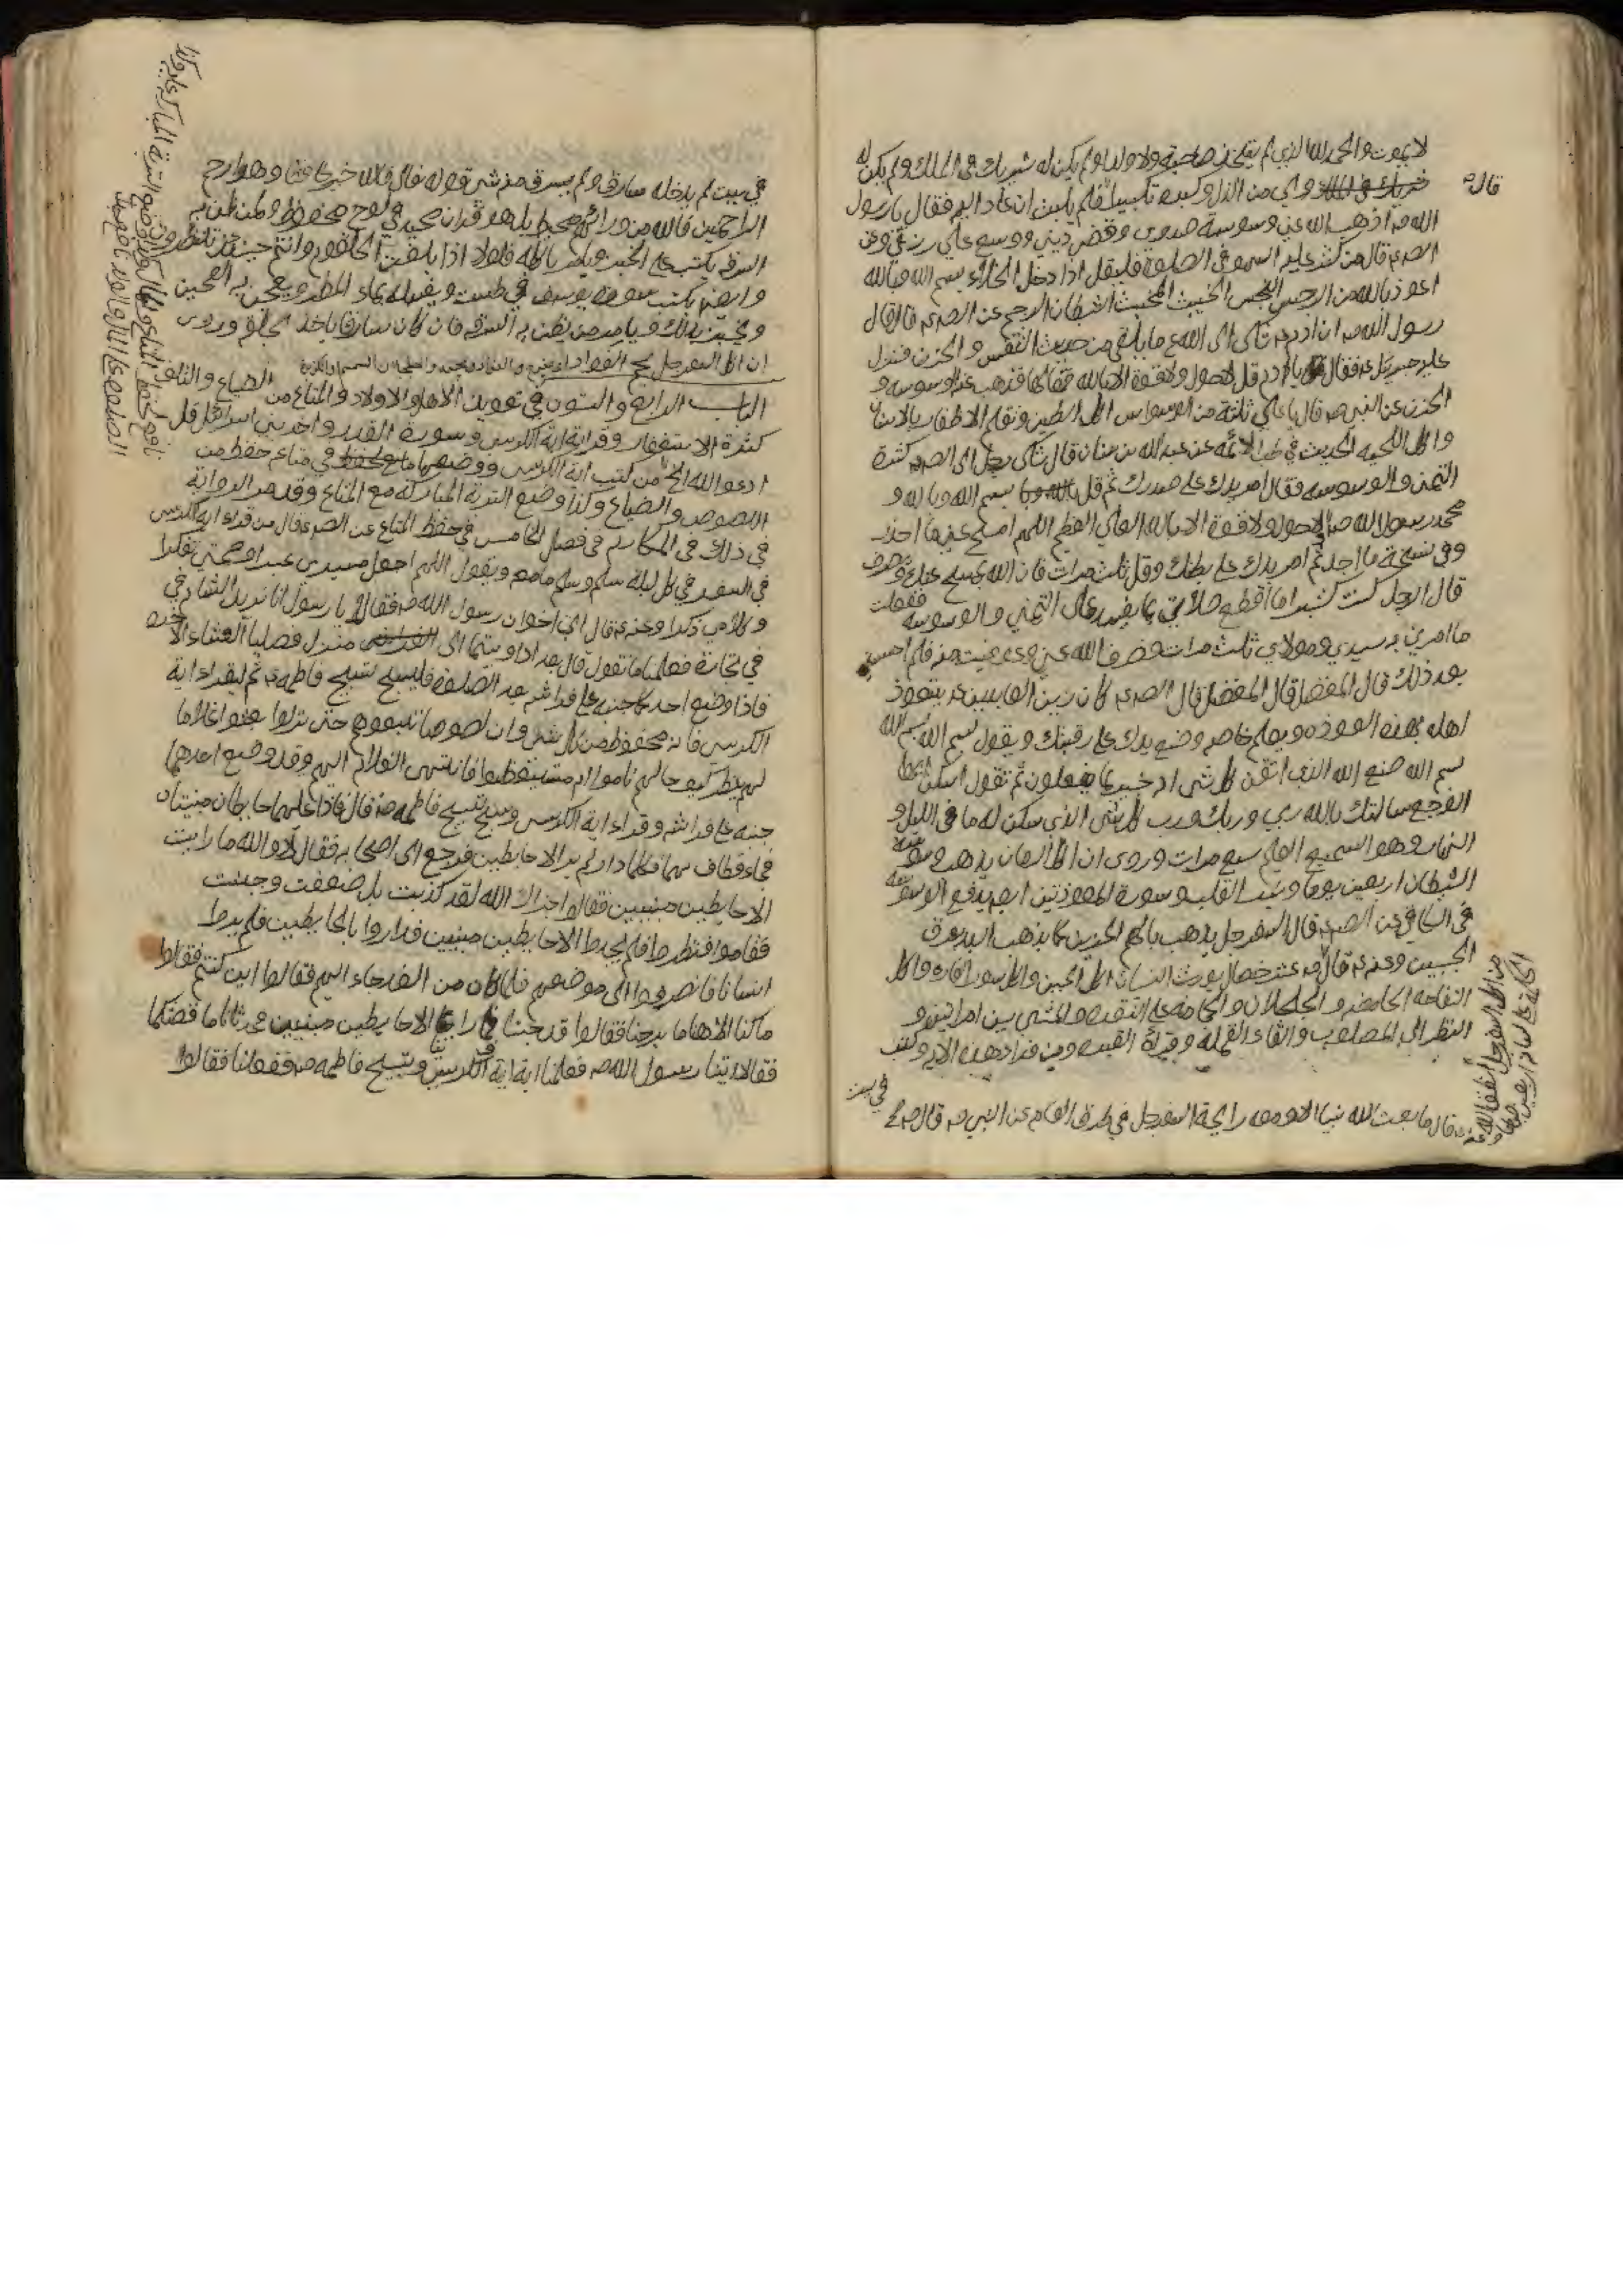 لا يموت والحمد لله الذي لم يتخذ صاحبة ولا ولدا ولم يكن له شريك في الملك ولم يكن له
ولي من الذل وكبره تكبيرا فلم يلبث ان عاد اليه فقال يا رسول
قال
الله ص اذهب الله عني وسوسة صدري وقضى ديني ووسع علي رزقي وعن
الص ع قال من كثر عليه السهو في الصلوة فليقل اذا دخل الخلاء بسم الله وبالله
اعوذ بالله من الرجس النجس الخبيث المخبث الشيطان الرجيم عن الص ع قال قال
رسول الله ص ان ادم ع شكى الى الله ع ما يلقى من حديث النفس والحزن فنزل
عليه جبرئيل ع فقال يا ادم قل لا حول ولا قوة الا بالله فقالها فذهب عنه الوسوسه و
الحزن عن النبي ص قال يا علي ثلثة من الوسواس اكل الطين وتقليم الاظفار بالاسنان
واكل اللحيه الحديث في طب الائمه عن عبد الله بن سنان قال شكى رجل الى الص ع كثرة
التمني والوسوسه فقال امر يدك على صدرك ثم قل بسم الله وبالله و
محمد رسول الله ص لا حول ولا قوة الا بالله العلي العظيم اللهم امسح عني ما احذر
وفي نسخة ما اجد ثم امر يدك على بطنك وقل ثلث مرات فان الله يمسح عنك ويصرف
قال الرجل كنت كثيرا ما اقطع صلاتي مما يفسد علي التمني والوسوسه ففعلت
ما امرني به سيدي ومولاي ثلث مرات فصرف الله عني وعوفيت منه فلم احس به
بعد ذلك قال المفضل قال الص ع كان زين العابدين ع يتعوذ
اهله بهذه العوذه ويعلم خاصه وضع يدك على رقبتك ويقول بسم الله بسم الله
بسم الله صنع الله الذي اتقن كل شي انه خبير بما يفعلون ثم تقول اسكن
الوجع سالتك بالله ربي وربك ورب كل شي الذي سكن له ما في الليل و
النهار وهو السميع العليم سبع مرات وروي ان اكل الرمان يذهب وسوسة
الشيطان اربعين يوما وينير القلب وسورة المعوذتين ايضا يدفع الوسوسه
في الكافي عن الص ع قال السفرجل يذهب بالهم الحزين كما يذهب اليد بعرق
الجبين وعنه ع قال ص عشر خصال يورث النسيان اكل الجبن واكل سور الفاره واكل
التفاحه الحامضه والجلجلان والحجامه على النقره والمشي بين امراتين و
النظر الى المصلوب والقاء القمله وقراة القبور ومن قرا هذه الايه وكتب
في بيت
قال ما بعث الله نبيا الا ومعه رايحة السفرجل
في بيت لم يدخله سارق ولم يسرق منه شي قوله تعالى فالله خير حافظا وهو ارحم
الراحمين فالله من ورائهم محيط بل هو قران مجيد في لوح محفوظ ولمن ظن به
السرقه يكتب على الخبز ويامر باكله فلولا اذا بلغت الحلقوم وانتم حينئذ تنظرون
وايضا يكتب سورة يوسف في طست ويغسله بماء المطر ويعجن به العجين
ويخبز بذلك ويامر من يظن به السرقه فان كان سارقا ياخذ بحلقه
ان اكل السفرجل يجم الفواد
الباب الرابع والستون في تعويذ الاهل والاولاد والمتاع من الضياع والتلف
كثرة الاستغفار وقراية اية الكرسي وسورة القدر واخر بني اسرائيل قل
ادعوا الله الخ من كتب اية الكرسي ووضعها في متاعه حفظ من
اللصوص والضياع وكذا وضع التربة المباركه مع المتاع وقد مر الرواية
في ذلك في المكارم في فصل الخامس في حفظ المتاع عن الص ع قال من قراء اية الكرسي
في السفر في كل ليلة سلم وسلم ما معه ويقول اللهم اجعل مسيري عبرا وصمتي تفكرا
وكلامي ذكرا وعنه ع قال اتى اخوان رسول الله ص فقالا يا رسول الله انا نريد الشام في
في تجارة فعلمنا ما نقول قال بعد اذ اويتما الى منزل فصليا العشاء الاخره
فاذا وضع احدكما جنبه على فراشه بعد الصلوة فليسبح تسبيح فاطمه ع ثم ليقراء اية
الكرسي فانه محفوظ من كل شي وان لصوصا تبعوهم حتى نزلوا بعثوا غلاما
لهم ينظر كيف حالهم ناموا ام مستيقظوا فانتهى الغلام اليهم وقد وضع احدهما
جنبه على فراشه وقراء اية الكرسي وسبح تسبيح فاطمه ص قال فاذا عليهما حايطان مبنيان
فجاء فطاف بهما فكلما دار لم ير الا حايطين فرجع الى اصحابه فقال لا والله ما رايت
الا حايطين مبنيين فقالوا اخزاك الله لقد كذبت بل ضعفت وجبنت
فقاموا فنظروا فلم يجدوا الا حايطين مبنيين فداروا بالحايطين فلم يروا
انسانا فانصرفوا الى موضعهم فلما كان من الغد جاءوا اليهم فقالوا اين كنتم فقالا
ما كنا الا هنا ما برحنا فقالوا قد جئنا فما راينا الا حايطين مبنيين فحدثانا ما قصتكما
فقالا اتينا رسول الله ص فعلمنا اية الكرسي وتسبيح فاطمه ص ففعلنا فقالوا